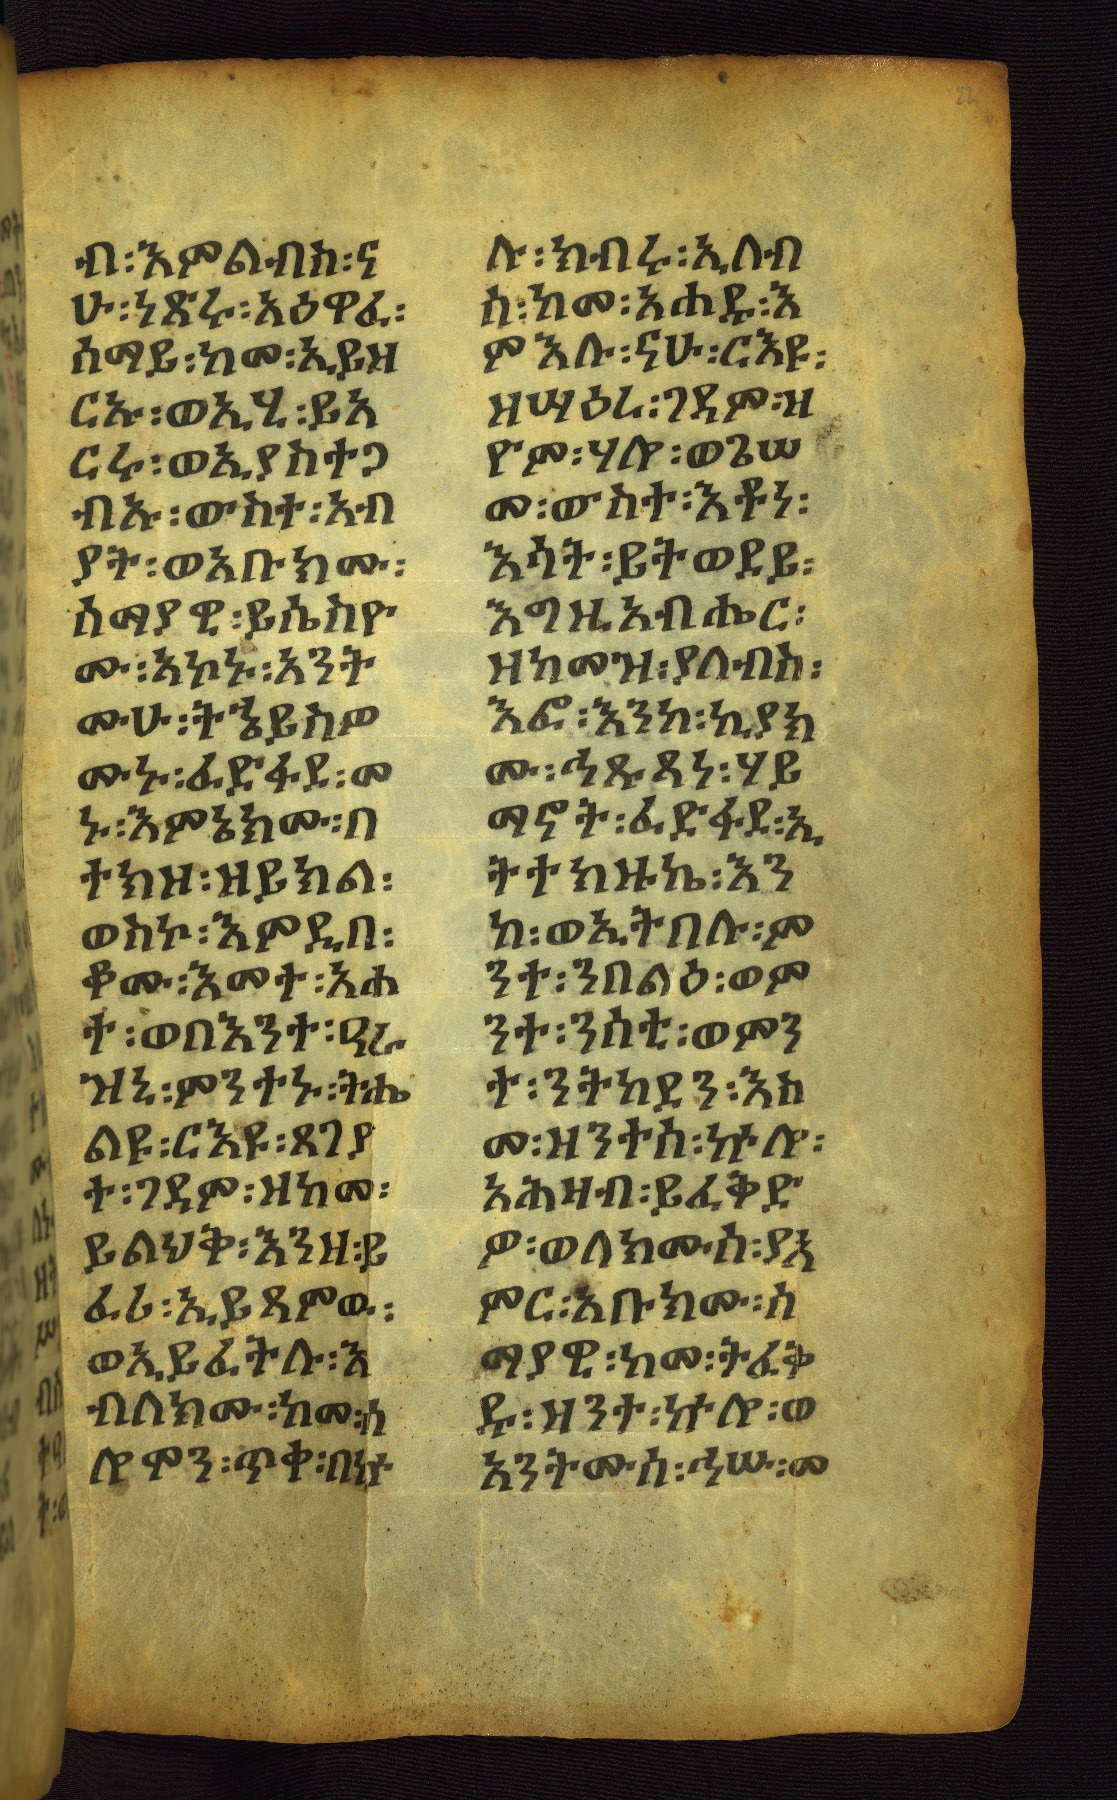 ብ፡እምልብስ፡ና
ሁ፡ነጽሩ፡አዕዋፈ፡
ሰማይ፡ከመ፡ኢይዘ
ርኡ፡ወኢሂ፡ይእ
ርሩ፡ወኢያስተጋ
ብኡ፡ውስተ፡አብ
ያት፡ወአቡክሙ፡
ሰማያዊ፡ይሴስዮ
ሙ፡አኮኑ፡አንት
ሙሁ፡ትኄይስዎ
ሙኑ፡ፈድፋደ፡መ
ኑ፡እምኔክሙ፡በ
ተክዘ፡ዘይክል፡
ወስኮ፡እምዲበ፡
ቆሙ፡እመተ፡አሐ
ተ፡ወበእንተ፡ዓራ
ዝኒ፡ምንተኑ፡ትሔ
ልዩ፡ርእዩ፡ጸገያ
ተ፡ገዳም፡ዘከመ፡
ይልህቅ፡እንዘ፡ይ
ፈሪ፡ኢይጻምው፡
ወኢይፈትሉ፡እ
ብለክሙ፡ከመ፡ሰ
ሎሞን፡ጥቀ፡በኵ
ሉ፡ክብሩ፡ኢለብ
ሰ፡ከመ፡አሐዱ፡እ
ምእሉ፡ናሁ፡ርእዩ፡
ዘሣዕረ፡ገዳም፡ዘ
ዮም፡ሃሎ፡ወጌሠ
መ፡ውስተ፡እቶነ፡
እሳት፡ይትወደይ፡
እግዚአብሔር፡
ዘከመዝ፡ያለብስ፡
እፎ፡እንከ፡ኪያክ
ሙ፡ሕጹጻነ፡ሃይ
ማኖት፡ፈድፋደ፡ኢ
ትተክዙኬ፡እን
ከ፡ወኢትበሉ፡ም
ንተ፡ንበልዕ፡ወም
ንተ፡ንሰቲ፡ወምን
ተ፡ንትከደን፡እስ
መ፡ዘንተሰ፡ኵሎ፡
አሕዛብ፡ይፈቅድ
ዎ፡ወለክሙሰ፡ያአ
ምር፡አቡክሙ፡ሰ
ማያዊ፡ከመ፡ትፈቅ
ዱ፡ዘንተ፡ኵሎ፡ወ
አንትሙሰ፡ኅሡ፡መ